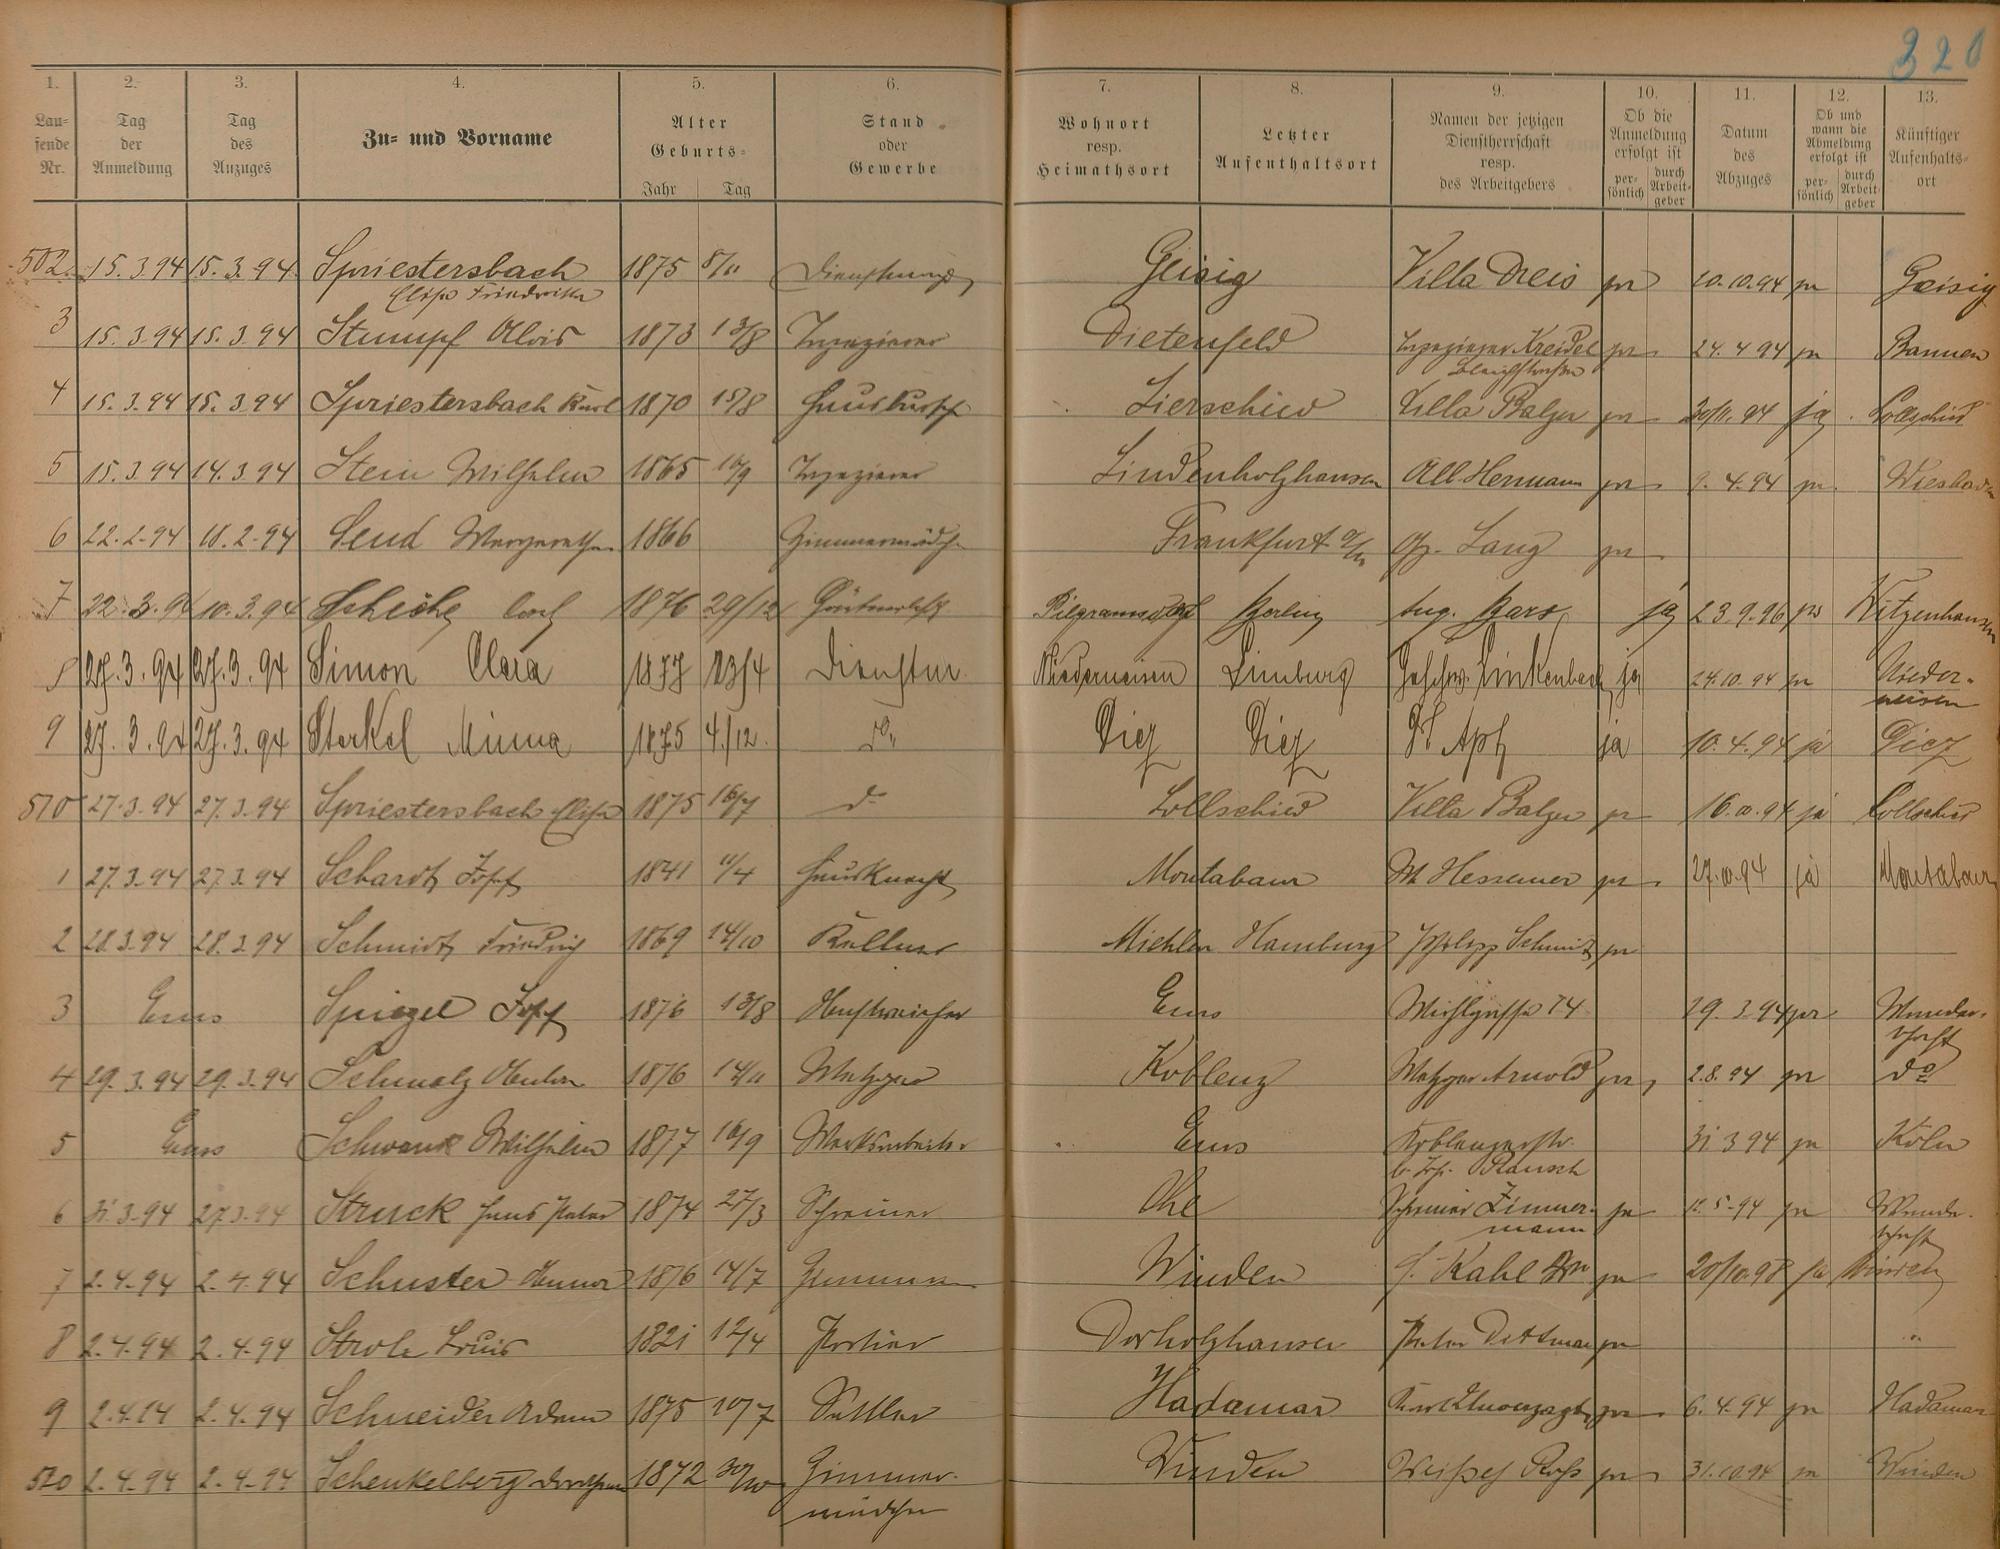 320
1. 2. 3. 4. 5. 6. 7. 8. 9. 10. 11. 12. 13.
Lau-
fende
Nr.
Tag
der
Anmeldung
Tag
des
Anzuges
Zu- und Vorname
Alter
Geburts-
Jahr Tag
Stand
oder
Gewerbe
Wohnort
resp.
Heimathsort
Letzter
Aufenthaltsort
Namen der jetzigen
Dienstherrschaft
resp.
des Arbeitgebers
Ob die
Anmeldung
erfolgt ist
per-
sönlich
durch
Arbeit-
geber
Datum
des
Abzuges
Ob und
wann die
Abmeldung
erfolgt ist
per-
sönlich
durch
Arbeit-
geber
Künftiger
Aufenthalts-
ort
502 15.3.94 15.3.94 Spriestersbach 1875 8/11 Geisig Villa Dreis pr 10.94 pr Geisig
Elise Friedrike
3 15.3.94 15.3.94 Stumpf Alois 1873 13/8 Tapezierer Dietenfeld Tapezierer Kreidel pr 24.4.94 pr
4 15.3.94 15.3.94 Spriestersbach Karl 1870 15/8 Hausbursch Lierschied Villa Balzer pr 20/11.94 ja Lollschied
5 15.3.94 14.3.94 Stein Wilhelm 1865 16/9 Tapezierer Lindenholzhausen Hermann pr 9.4.94 pr Wiesbaden
6 22.2.94 18.2.94 Send Margarethe 1866 Zimmermädch. Frankfurt a/M Lang pr
7 22.3.94 10.3.94 1876 29/12 Pilgramsdorf Berlin Aug. ja 23.9.96 ps Witzenhausen
8 27.3.94 27.3.94 Simon Clara 1877 23/4 Dienstm. Niederneisen Limburg Geschw. Linkenbach ja 24.10.94 pr Nieder-
neisen
9 27.3.94 27.3.94 Sterkel Minna 1875 4/12. do Diez Diez ja 10.4.94 ja Diez
510 27.3.94 27.3.94 Spriestersbach Elise 1875 16/7 do Lollschied Villa Balzer pr 16.10.94 ja Lollschied
1 27.3.94 27.3.94 Schardt Josef 1841 11/4 Hausknecht Montabaur Hessemer pr 27.10.94 ja Montabaur
2 28.3.94 28.3.94 Schmidt Friedrich 1869 14/10 Kellner Miehlen Hamburg Philipp Schmidt pr
3 Ems Spiegel Josef 1876 13/8 Ems 74 29.3.94 pr Wander-
schaft
4 29.3.94 29.3.94 Schmalz Anton 1876 14/11 Metzger Koblenz Metzger Arnold pr 2.8.94 pr do
5 Ems Schwank Wilhelm 1877 16/9 Werksarbeiter Ems Koblenzerstr. 31.3.94 pr Köln
b. Jos. Rausch
6 31.3.94 27.3.94 Struck Hans Peter 1874 27/3 Schreiner Schreiner Zimmer- pr 5.94 pr Wander-
mann schaft
7 2.4.94 2.4.94 Schuster 1876 14/7 Winden Kahl pr 20/10.98 Winden
8 2.4.94 2.4.94 Louis 1821 12/4 Portier Dorholzhausen Peter Dittmar pr
9 2.4.94 2.4.94 Schneider Adam 1875 10/7 Sattler Hadamar pr 6.4.94 pr Hadamar
520 2.4.94 2.4.94 Schenkelberg 1872 30/10 Zimmer- Winden Weißes Roß pr 31.10.94 pr Winden
mädchen